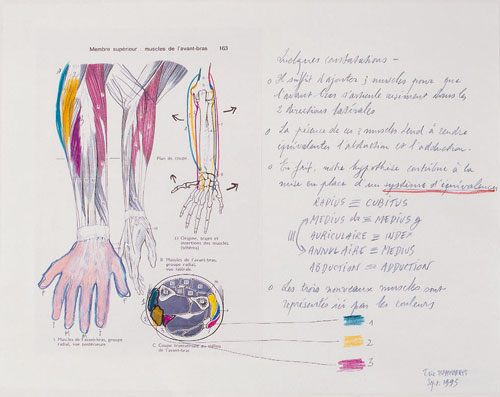 Membre supérieur : muscles de l'avant-bras 163
Plan de coupe
D Origine, trajet et
insertions des muscles
(schéma)
B Muscles de l'avant-bras,
groupe radial,
vue latérale
A Muscles de l'avant-bras, groupe
radial, vue antérieure
C Coupe transversale au milieu
de l'avant-bras
Quelques constatations -
o Il suffit d'ajouter 3 muscles pour que
l'avant-bras s'articule aisément dans les
2 directions latérales
o La présence de ces 3 muscles tend à rendre
équivalentes l'abduction et l'adduction.
o En fait, notre hypothèse contribue à la
mise en place d'un système d'équivalences
RADIUS ≡ CUBITUS
MEDIUS de ≡ MEDIUS g
AURICULAIRE ≡ INDEX
ANNULAIRE ≡ MEDIUS
ABDUCTION ≡ ADDUCTION
o Les trois nouveaux muscles sont
représentés ici par les couleurs
1
2
3
1993